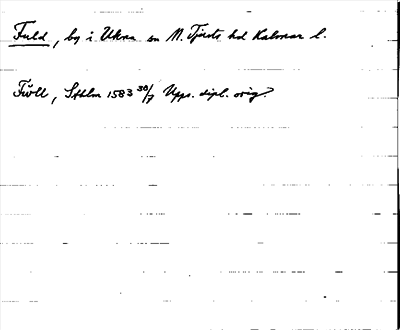 Fuld, by i Ukna sn N. Tjusts hd Kalmar l.
Fwll, Sthlm 1583 30/7 Upps. dipl. orig.